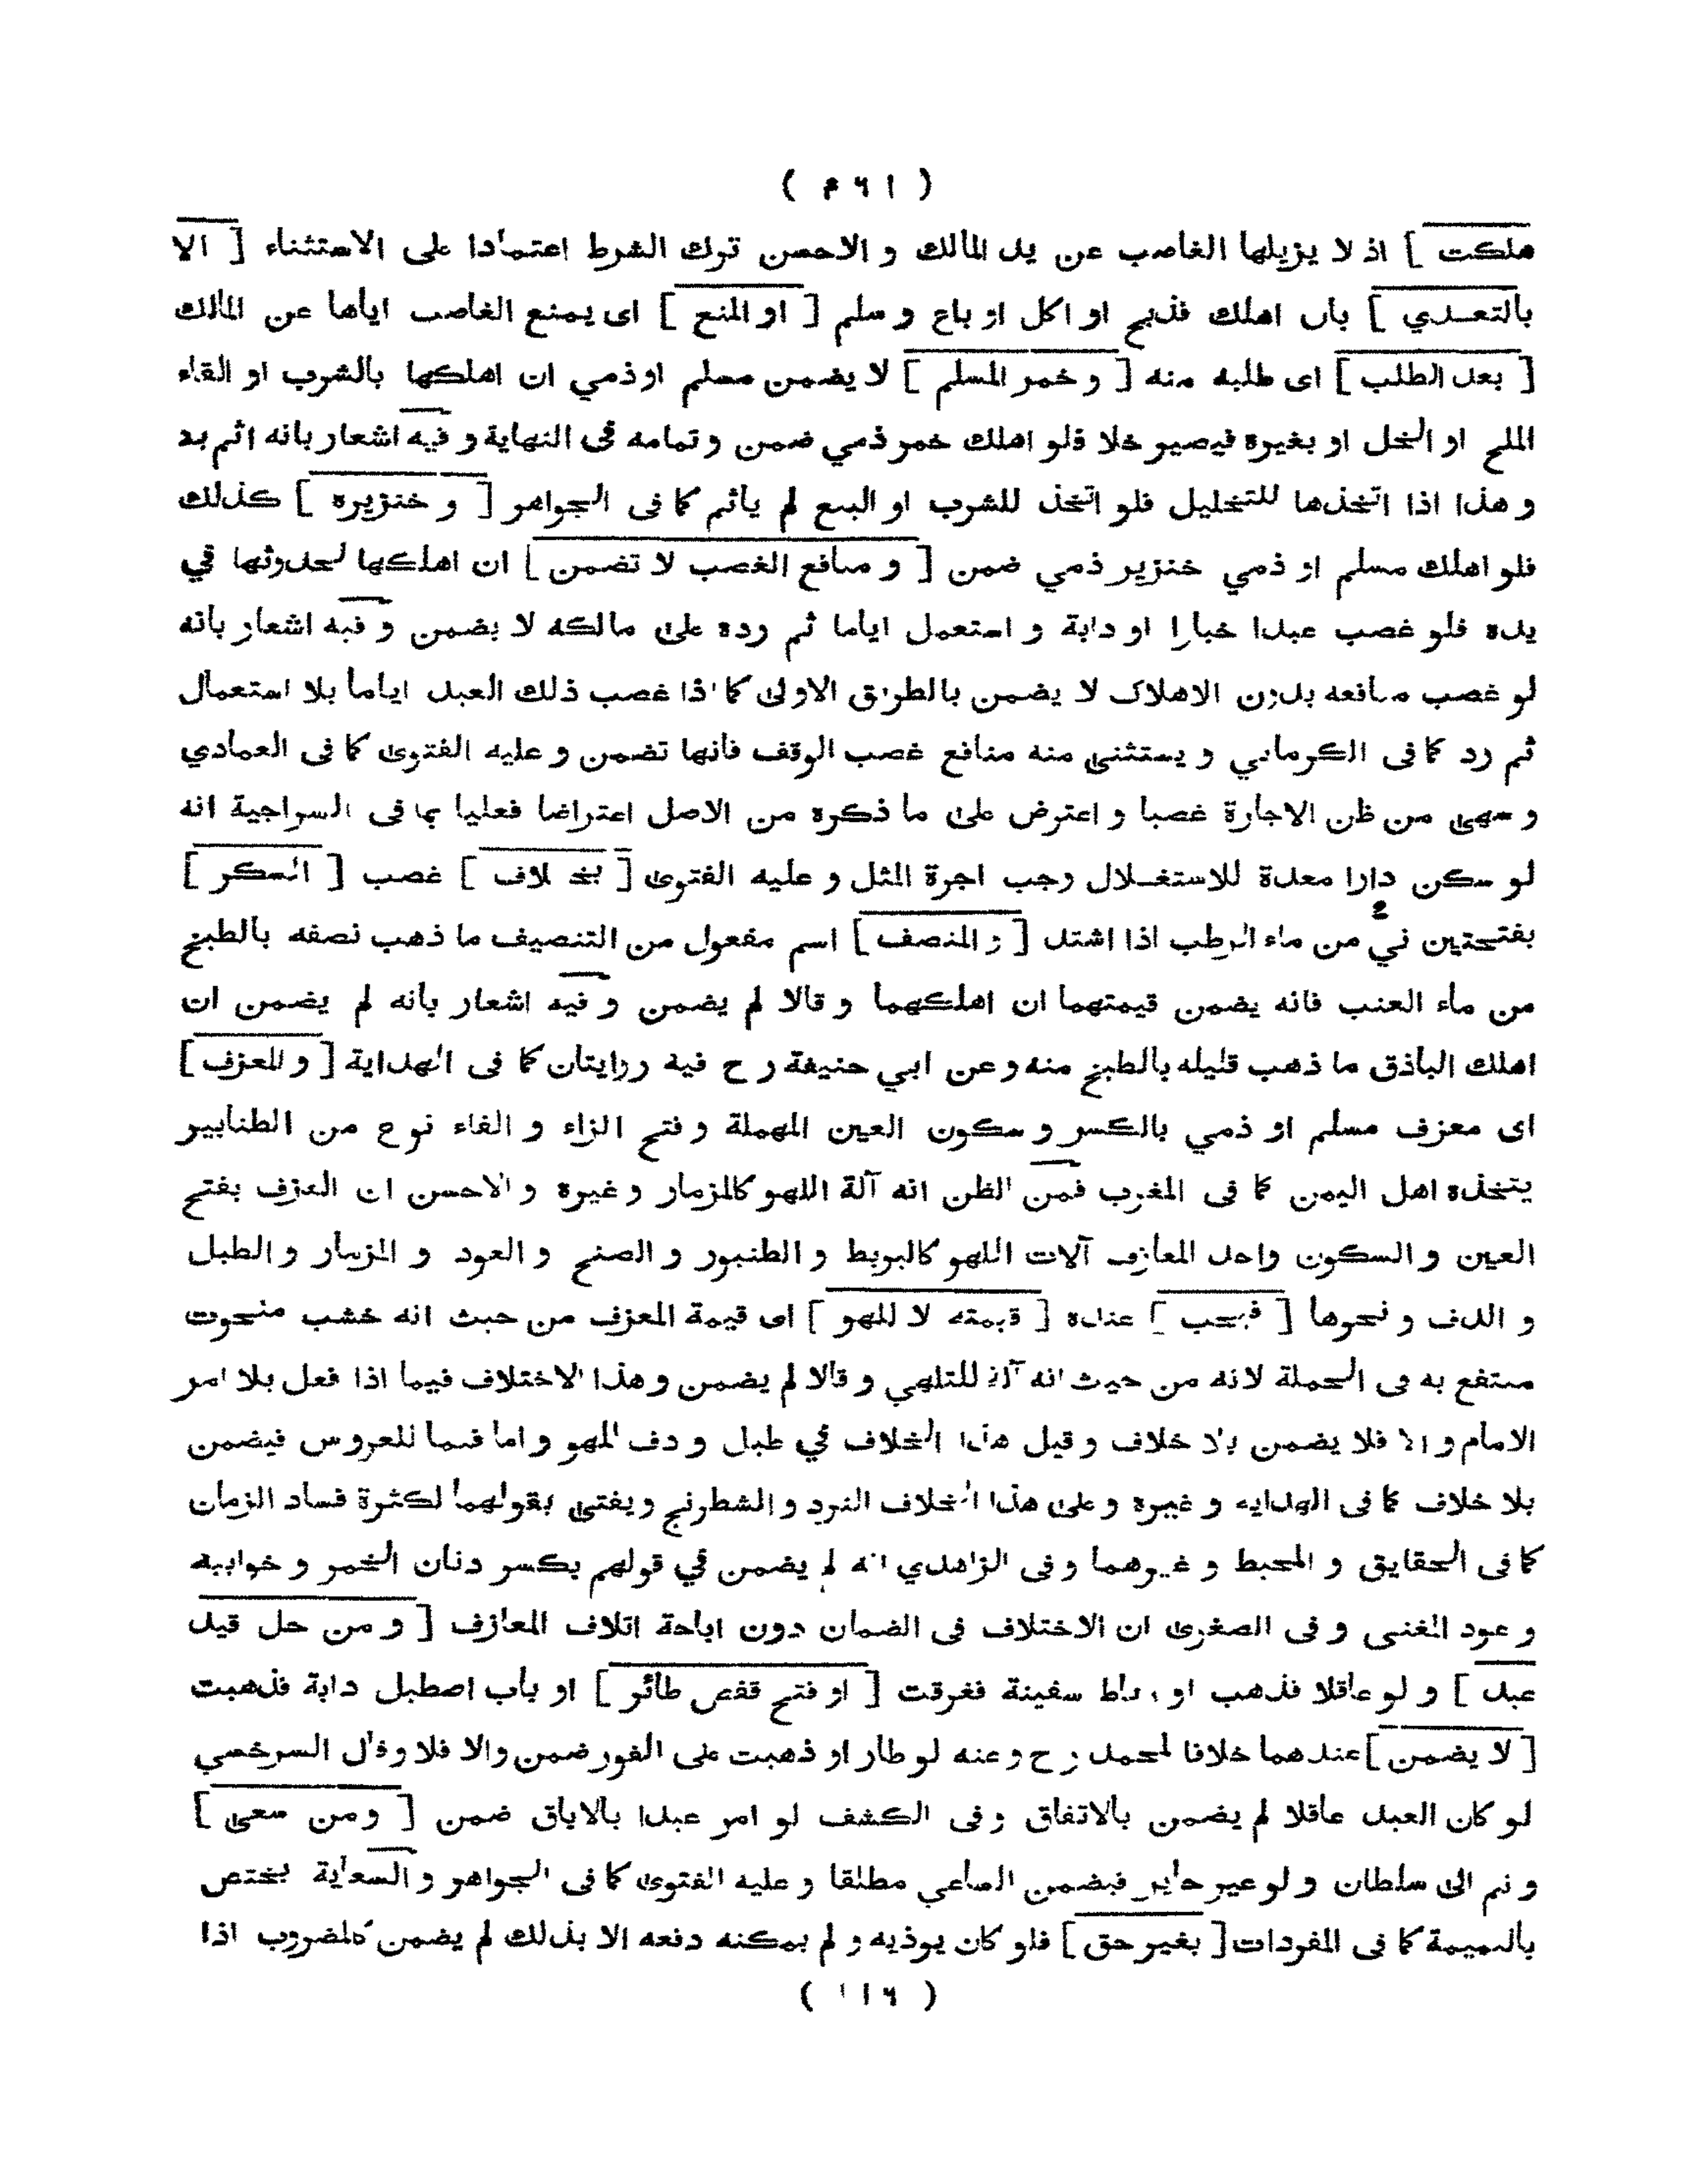 ( ۴۶۱ )
هلكت ] اذ لا يزيلها الغاصب عن يد المالك و الاحسن ترك الشرط اعتمادا على الاستثناء [ الا
بالتعدي ] بان اهلك فذبح او اكل او باع و سلم [ او المنع ] اى يمنع الغاصب اياها عن المالك
[ بعد الطلب ] اى طلبه منه [ و خمر المسلم ] لا يضمن مسلم او ذمي ان اهلكها بالشرب او القاء
الملح او الخل او بغيره فيصير خلا فلو اهلك خمر ذمي ضمن و تمامه فى النهاية و فيه اشعار بانه اثم بد
و هذا اذا اتخذها للتخليل فلو اتخذ للشرب او البيع لم ياثم كما فى الجواهر [ و خنزيره ] كذلك
فلو اهلك مسلم او ذمي خنزير ذمي ضمن [ و منافع الغصب لا تضمن ] ان اهلكها لحدوثها في
يده فلو غصب عبدا خبازا او دابة و استعمل اياما ثم رده على مالكه لا يضمن و فيه اشعار بانه
لو غصب منافعه بدون الاهلاك لا يضمن بالطريق الاولى كما اذا غصب ذلك العبد اياما بلا استعمال
ثم رد كما فى الكرماني و يستثنى منه منافع غصب الوقف فانها تضمن و عليه الفتوى كما فى العمادي
و سهى من ظن الاجارة غصبا و اعترض على ما ذكره من الاصل اعتراضا فعليا بما فى السراجية انه
لو سكن دارا معدة للاستغلال وجب اجرة المثل و عليه الفتوى [ بخلاف ] غصب [ السكر ]
بفتحتين نيء من ماء الرطب اذا اشتد [ و المنصف ] اسم مفعول من التنصيف ما ذهب نصفه بالطبخ
من ماء العنب فانه يضمن قيمتهما ان اهلكهما و قالا لم يضمن و فيه اشعار بانه لم يضمن ان
اهلك الباذق ما ذهب قليله بالطبخ منه و عن ابي حنيفة رح فيه روايتان كما فى الهداية [ و للعزف ]
اى معزف مسلم او ذمي بالكسر و سكون العين المهملة و فتح الزاء و الفاء نوع من الطنابير
يتخذه اهل اليمن كما فى المغرب فمن الظن انه آلة اللهو كالمزمار و غيره و الاحسن ان العزف بفتح
العين و السكون واحد المعازف آلات اللهو كالبربط و الطنبور و الصنج و العود و المزمار و الطبل
و الدف و نحوها [ فيجب ] عنده [ قيمته لا للهو ] اى قيمة المعزف من حيث انه خشب منحوت
منتفع به فى الجملة لانه من حيث انه آلة للتلهي و قالا لم يضمن و هذا الاختلاف فيما اذا فعل بلا امر
الامام و الا فلا يضمن بلا خلاف و قيل هذا الخلاف في طبل و دف للهو و اما فيما للعروس فيضمن
بلا خلاف كما فى الهدايه و غيره و على هذا الخلاف النرد و الشطرنج و يفتى بقولهما لكثرة فساد الزمان
كما فى الحقايق و المحيط و غيرهما و فى الزاهدي انه لم يضمن في قولهم بكسر دنان الخمر و خوابيه
و عود المغني و فى الصغرى ان الاختلاف فى الضمان دون اباحة اتلاف المعازف [ و من حل قيد
عبد ] و لو عاقلا فذهب او رباط سفينة فغرقت [ او فتح قفص طائر ] او باب اصطبل دابة فذهبت
[ لا يضمن ] عندهما خلافا لمحمد رح و عنه لو طار او ذهبت على الفور ضمن والا فلا و قال السرخسي
لو كان العبد عاقلا لم يضمن بالاتفاق و فى الكشف لو امر عبدا بالاباق ضمن [ و من سعى ]
و نم الى سلطان و لو غير جاير فيضمن الساعي مطلقا و عليه الفتوى كما فى الجواهر و السعاية يختص
بالنميمة كما فى المفردات [ بغير حق ] فلو كان يوذيه و لم يمكنه دفعه الا بذلك لم يضمن كالمضروب اذا